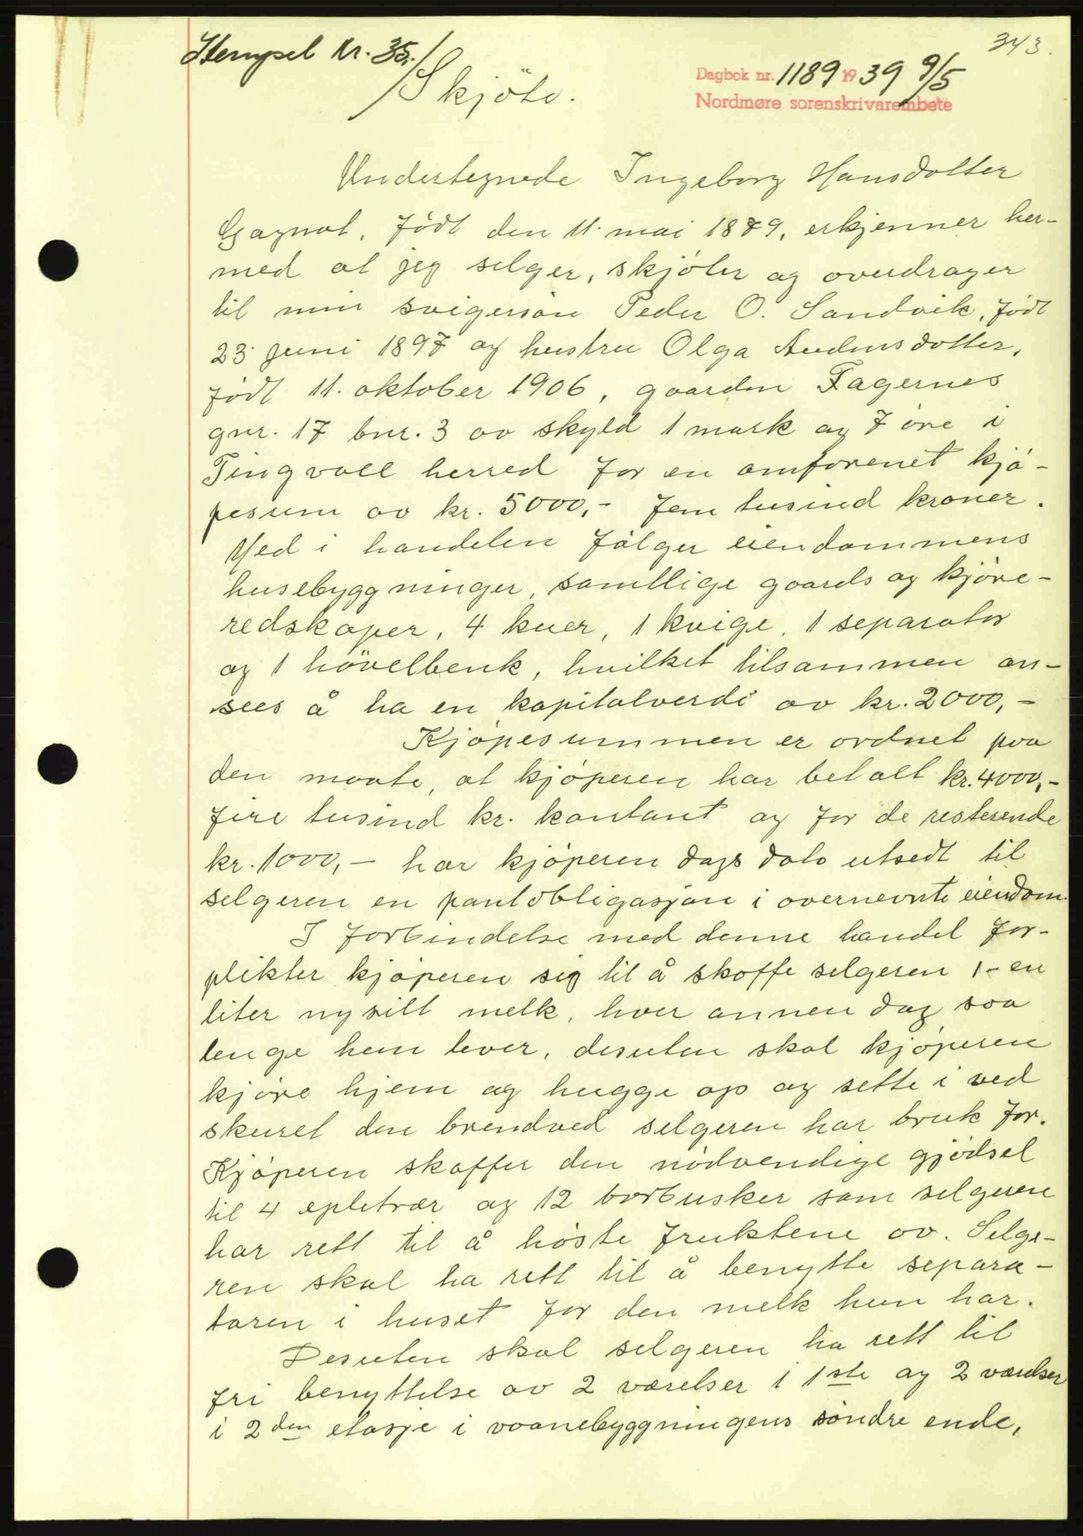 343.
Stempel kr. 35,-
Dagbok nr. 1189 1939 9/5
Nordmøre sorenskrivarembete
Skjöte.
Undertegnede Ingeborg Hansdotter
Gagnat, födt den 11. mai 1879, erkjenner her-
med at jeg selger, skjöter og overdrager
til min svigersön Peder O. Sandvik, födt
23. juni 1897 og hustru Olga Andersdotter,
födt 11. oktober 1906, gaarden Fagernes
gnr. 17 bnr. 3 av skyld 1 mark og 7 öre i
Tingvoll herred for en omforenet kjö-
pesum av kr. 5000,- fem tusind kroner.
Ved i handelen fölger eiendommens
husebyggninger, samtlige gaards og kjöre-
redskaper, 4 kuer, 1 kvige, 1 separator
og 1 hövelbenk, hvilket tilsammen an-
sees å ha en kapitalverdi av kr. 2000,-
Kjöpesummen er ordnet paa
den maate, at kjöperen har betalt kr. 4000,-
fire tusind kr. kontant og for de resterende
kr. 1000,- har kjöperen dags dato utsedt til
selgeren en pantobligasjon i overnevnte eiendom.
I forbindelse med denne handel for-
plikter kjöperen sig til å skaffe selgeren 1- en
liter nysilt melk, hver annen dag saa
lenge hun lever, desuten skal kjöperen
kjöre hjem og hugge op og sette i ved
skuret den brendved selgeren har bruk for.
Kjöperen skaffer den nödvendige gjödsel
til 4 epletrær og 12 bærbusker som selgeren
har rett til å höste fruktene av. Selge-
ren skal ha rett til å benytte separa-
toren i huset for den melk hun har.
Desuten skal selgeren ha rett til
fri benyttelse av 2 værelser i 1ste og 2 værelser
i 2den etasje i vaanebyggningens söndre ende,